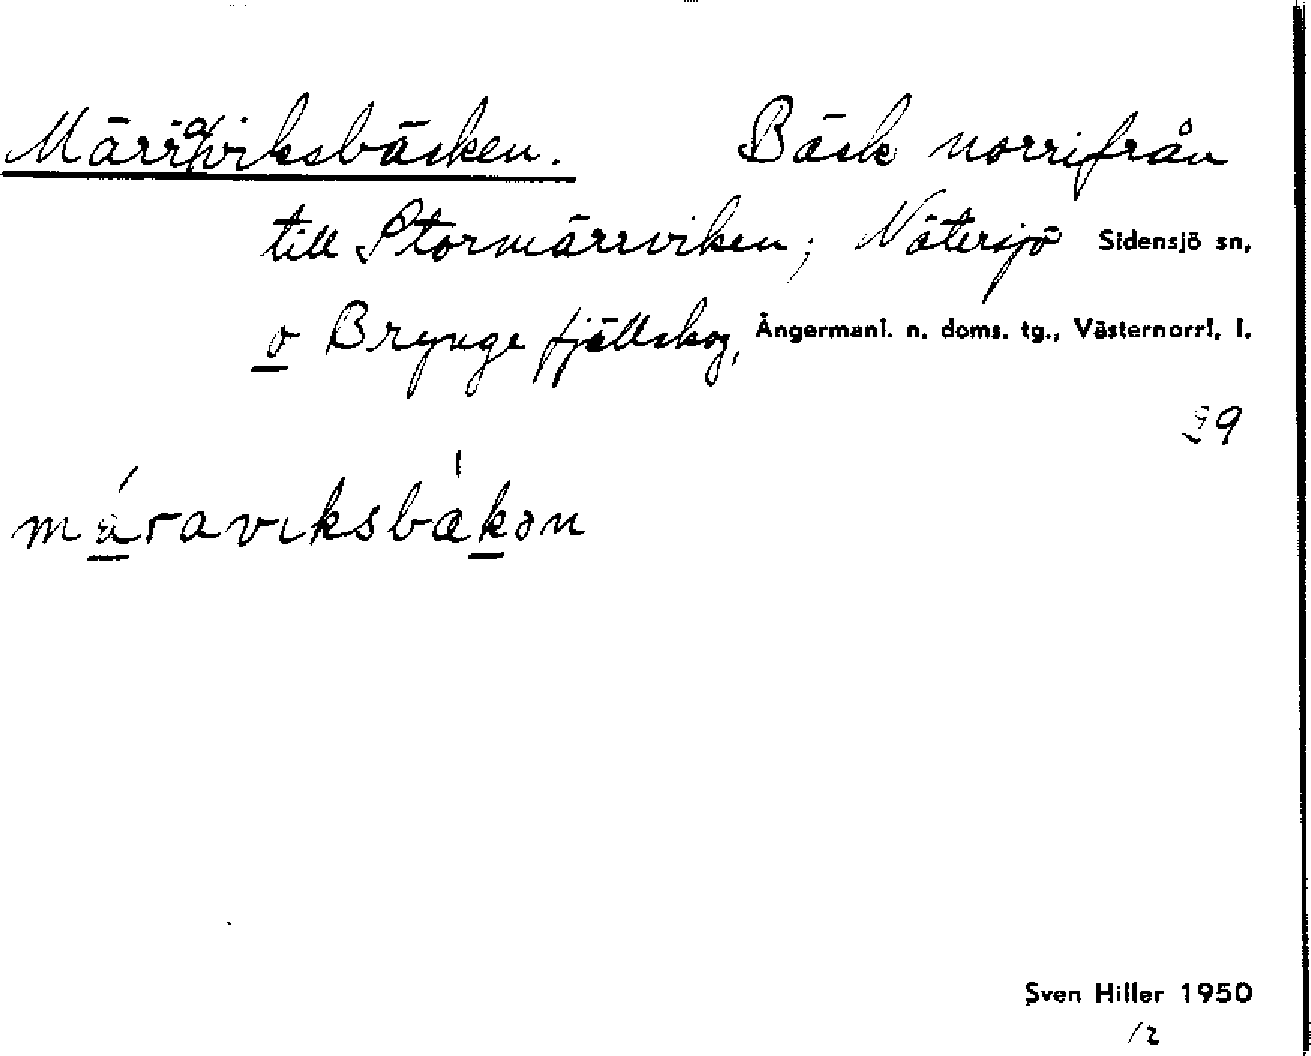 Märraviksbäcken. Bäck norrifrån
till Stormärrviken; Nätersjö Sidensjö sn,
o Brynge fjällskog, Ångermanl. n. doms. tg., Västernorrl. l.
99
máraviksbækən
Sven Hiller 1950
12